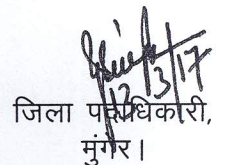 12/3/17
जिला पदाधिकारी,
मुंगेर।